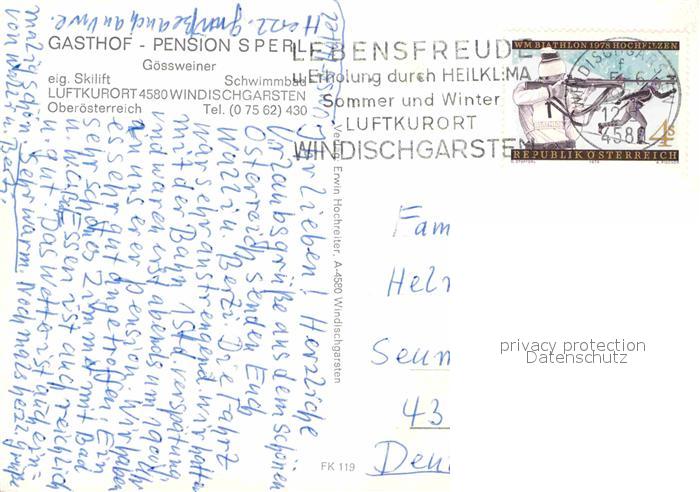 GASTHOF - PENSION SPERL
Gössweiner
eig. Skilift Schwimmbad
LUFTKURORT 4580 WINDISCHGARSTEN
Oberösterreich Tel. (0 75 62) 430
LEBENSFREUDE
u. Erholung durch HEILKLIMA
Sommer und Winter
LUFTKURORT
WINDISCHGARSTEN
WM BIATHLON 1978 HOCHFILZEN
4s
REPUBLIK ÖSTERREICH
4580
Verlag Erwin Hochreiter, A-4580 Windischgarsten
FK 119
Fam
Heln
Seun
43
Deu
privacy protection
Datenschutz
Ihr Lieben! Herzliche
Urlaubsgrüße aus dem schönen
Österreich senden Euch
Walli u. Berti. Die Fahrt
war sehr anstrengend wir hatten
mit der Bahn 1 Std Verspätung
und waren erst abends um 19 00 Uhr
an unserer Pension. Wir haben
es sehr gut angetroffen. Ein
sehr schönes Zimmer mit Bad
u. WC. Das Essen ist auch reichlich
u. gut. Das Wetter ist auch ein-
malig schön, sehr warm. Nochmals herzl. Grüße
von Walli u. Berti.
Herzl. Grüße auch an Uwe.